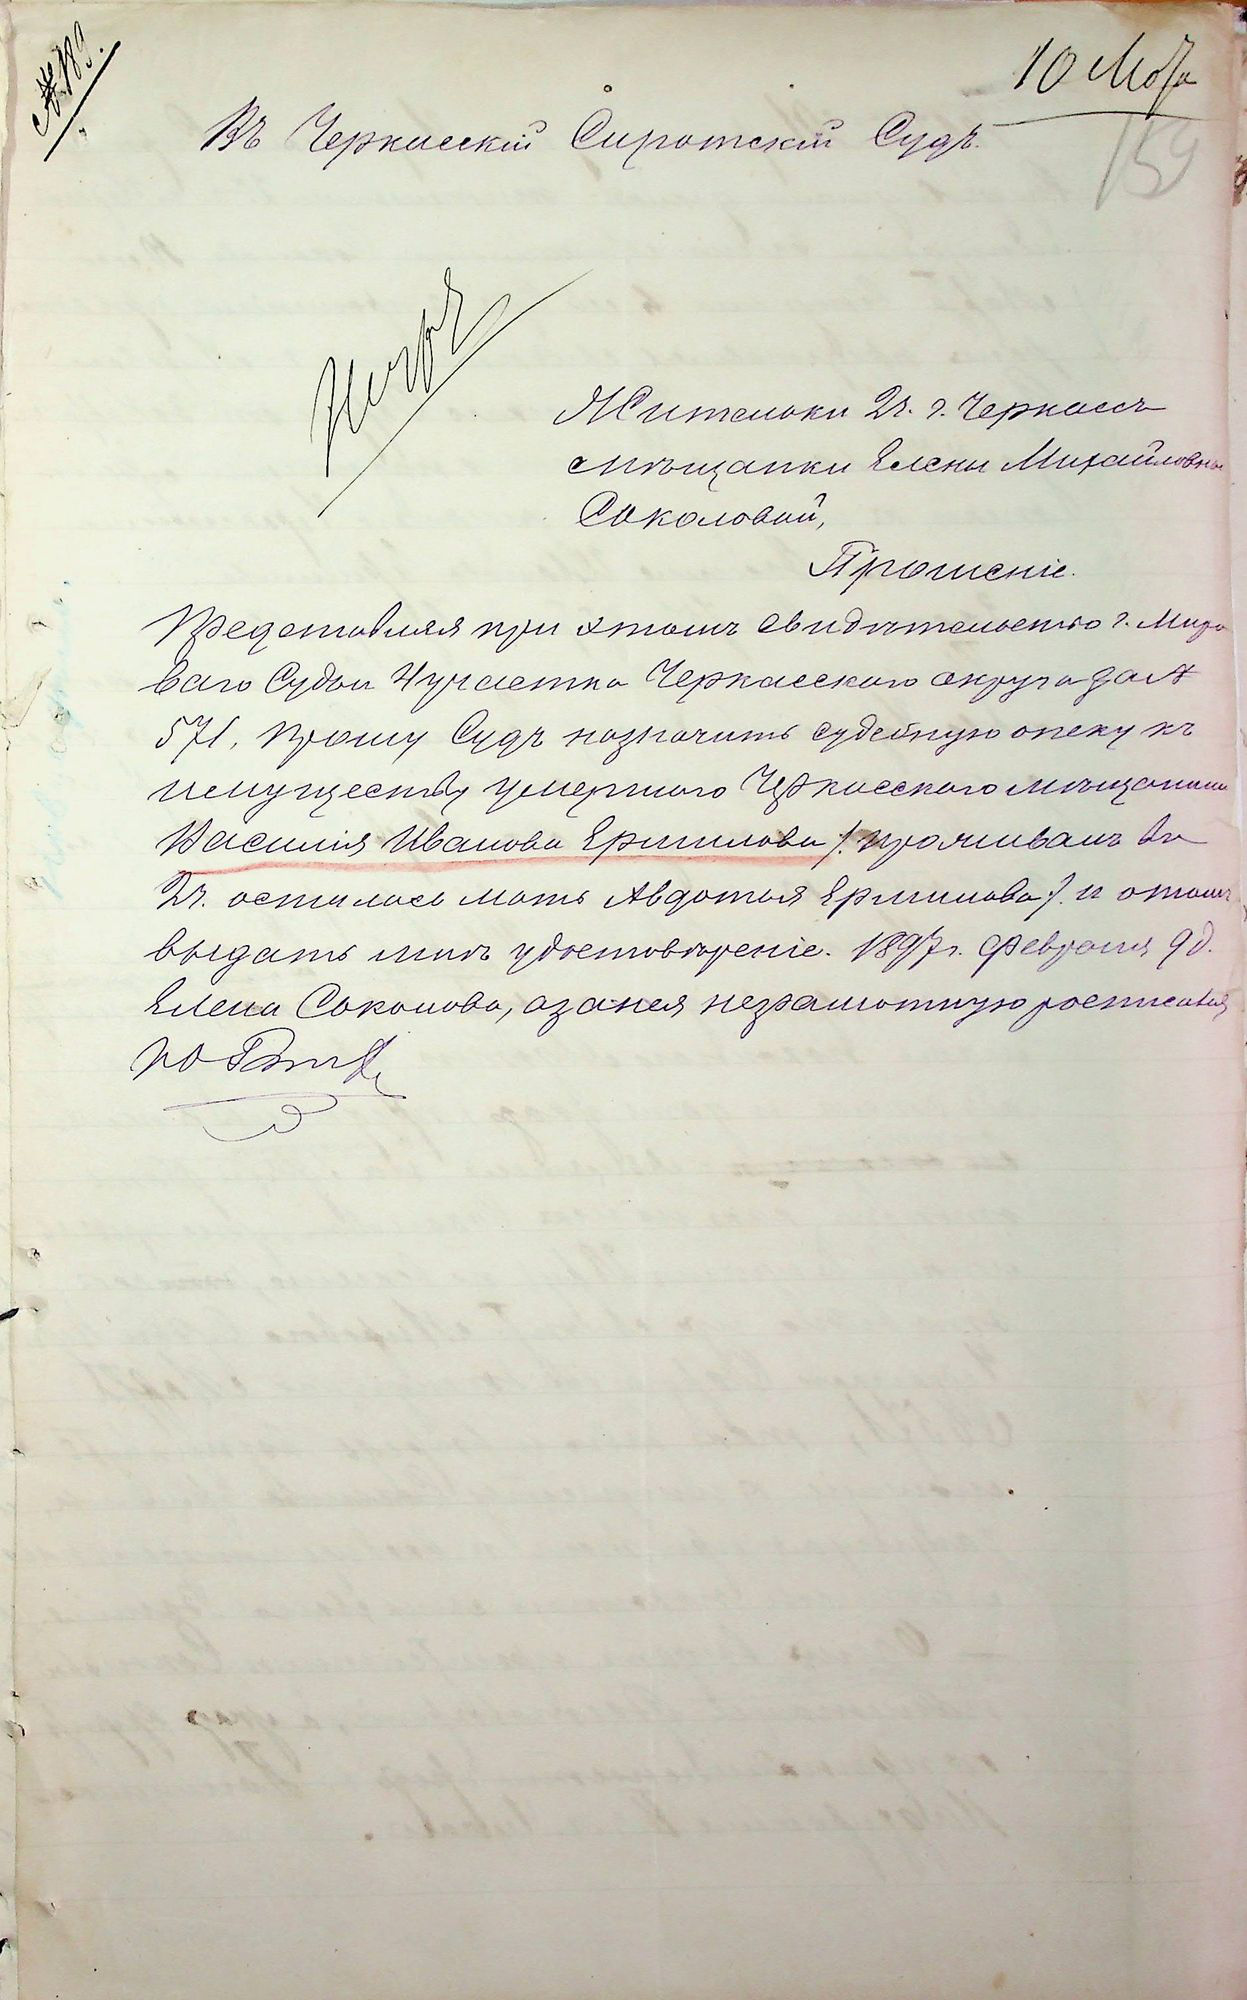 № 189.
10 Мая
159
Въ Черкасскій Сиротскій Судъ.
Жительки 2ч. г. Черкассъ
мѣщанки Елены Михайловны
Соколовой,
Прошеніе.
Представляя при этомъ свидѣтельство г. Миро
ваго Судьи 4 участка Черкасскаго округа за №
571, прошу Судъ назначить судебную опеку къ
имуществу умершаго Черкасскаго мѣщанина
Василія Иванова Ермилова /: проживалъ во
2ч. осталась мать Авдотья Ермилова :/ и о томъ
выдать мнѣ удостовѣреніе. 1897 г. Февраля 9 д.
Елена Соколова, а за нея неграмотную росписался
по